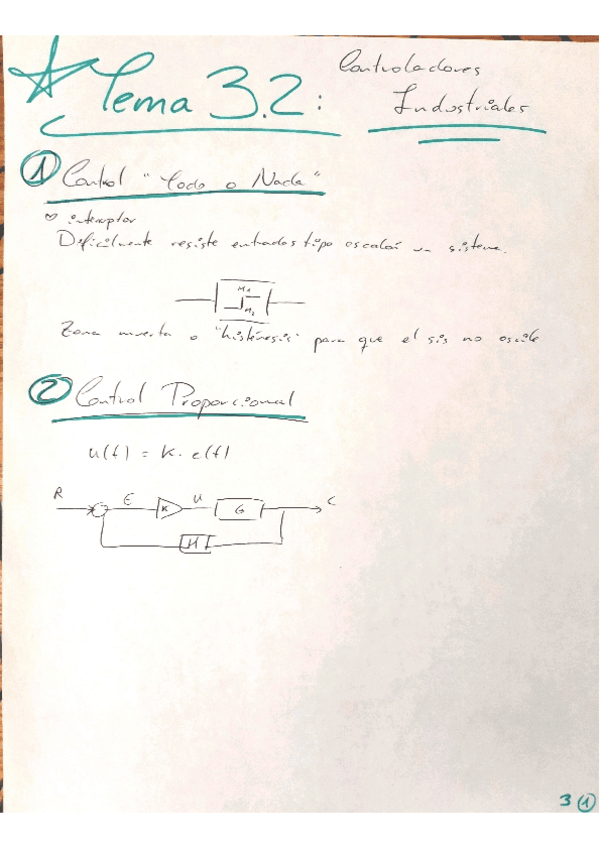 Tema 3.2: Controladores
Industriales
1 Control "Todo o Nada"
interruptor
Dificilmente resiste entradas tipo escalón un sistema.
M1
M2
Zona muerta o "histéresis" para que el sis no oscile
2 Control Proporcional
u(t) = K · e(t)
R E K U G C
H
3 1